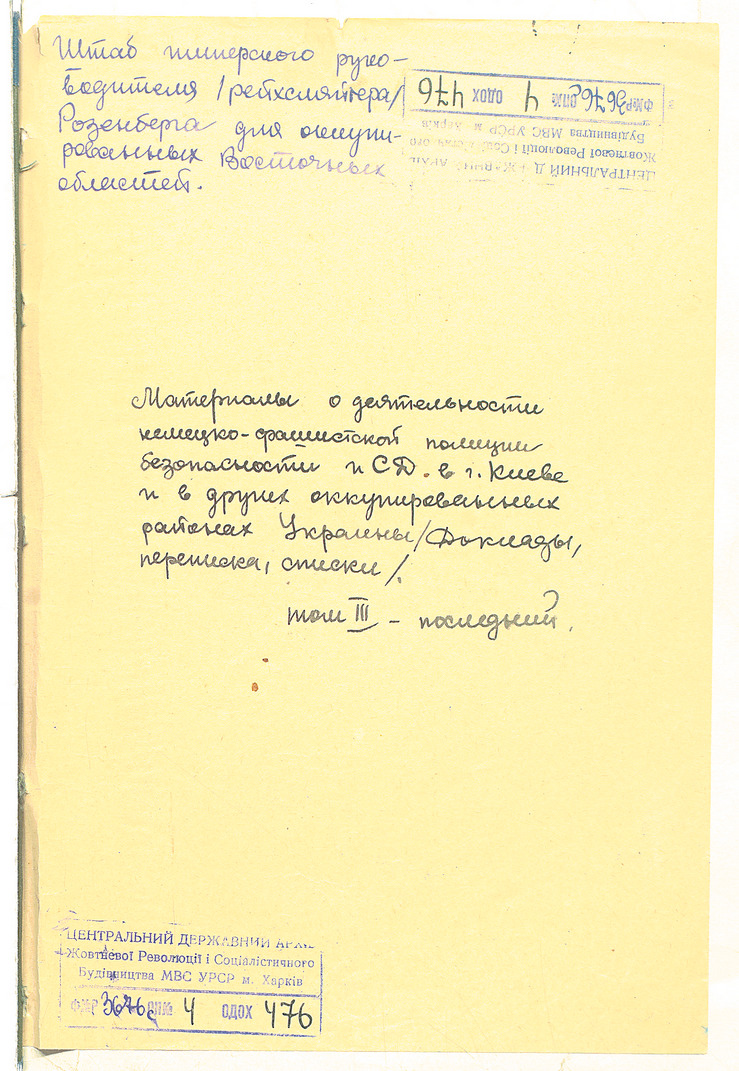 Штаб имперского руко-
водителя /рейхсляйтера/
Розенберга для оккупи-
рованных Восточных
областей.
ЦЕНТРАЛЬНИЙ ДЕРЖАВНИЙ АРХІВ
Жовтневої Революції і Соціалістичного
Будівництва МВС УРСР м. Харків
Ф№Р 3676с ОП№ 4 ОДОХ 476
Материалы о деятельности
немецко-фашистской полиции
безопасности и СД в г. Киеве
и в других оккупированных
районах Украины /Доклады,
переписка, списки/.
том III – последний.
ЦЕНТРАЛЬНИЙ ДЕРЖАВНИЙ АРХІВ
Жовтневої Революції і Соціалістичного
Будівництва МВС УРСР м. Харків
Ф№Р 3676с ОП№ 4 ОДОХ 476